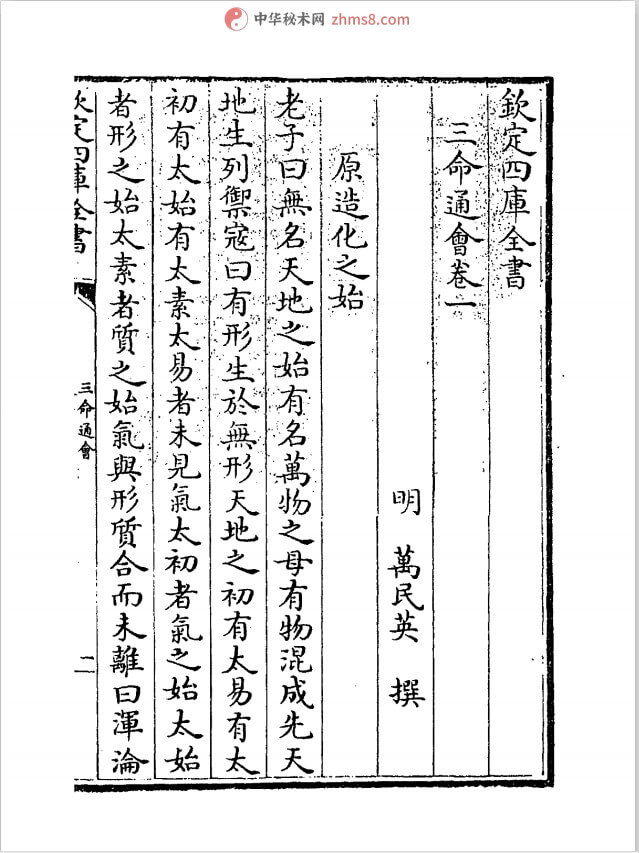 中华秘术网 zhms8.com
欽定四庫全書
三命通會卷一
明 萬民英 撰
原造化之始
老子曰無名天地之始有名萬物之母有物混成先天
地生列禦寇曰有形生於無形天地之初有太易有太
初有太始有太素太易者未見氣太初者氣之始太始
者形之始太素者質之始氣與形質合而未離曰渾淪
欽定四庫全書
三命通會
一